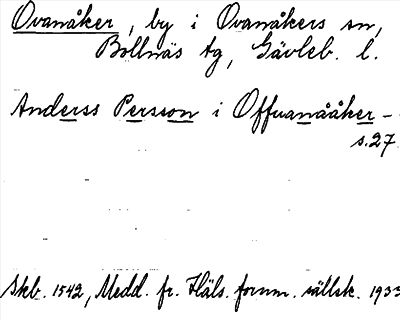 Ovanåker, by i Ovanåkers sn,
Bollnäs tg, Gävleb. l.
Anderss Persson i Offuanååker -
s. 27
Skb. 1542, Medd. fr. Häls. fornm. sällsk. 1933